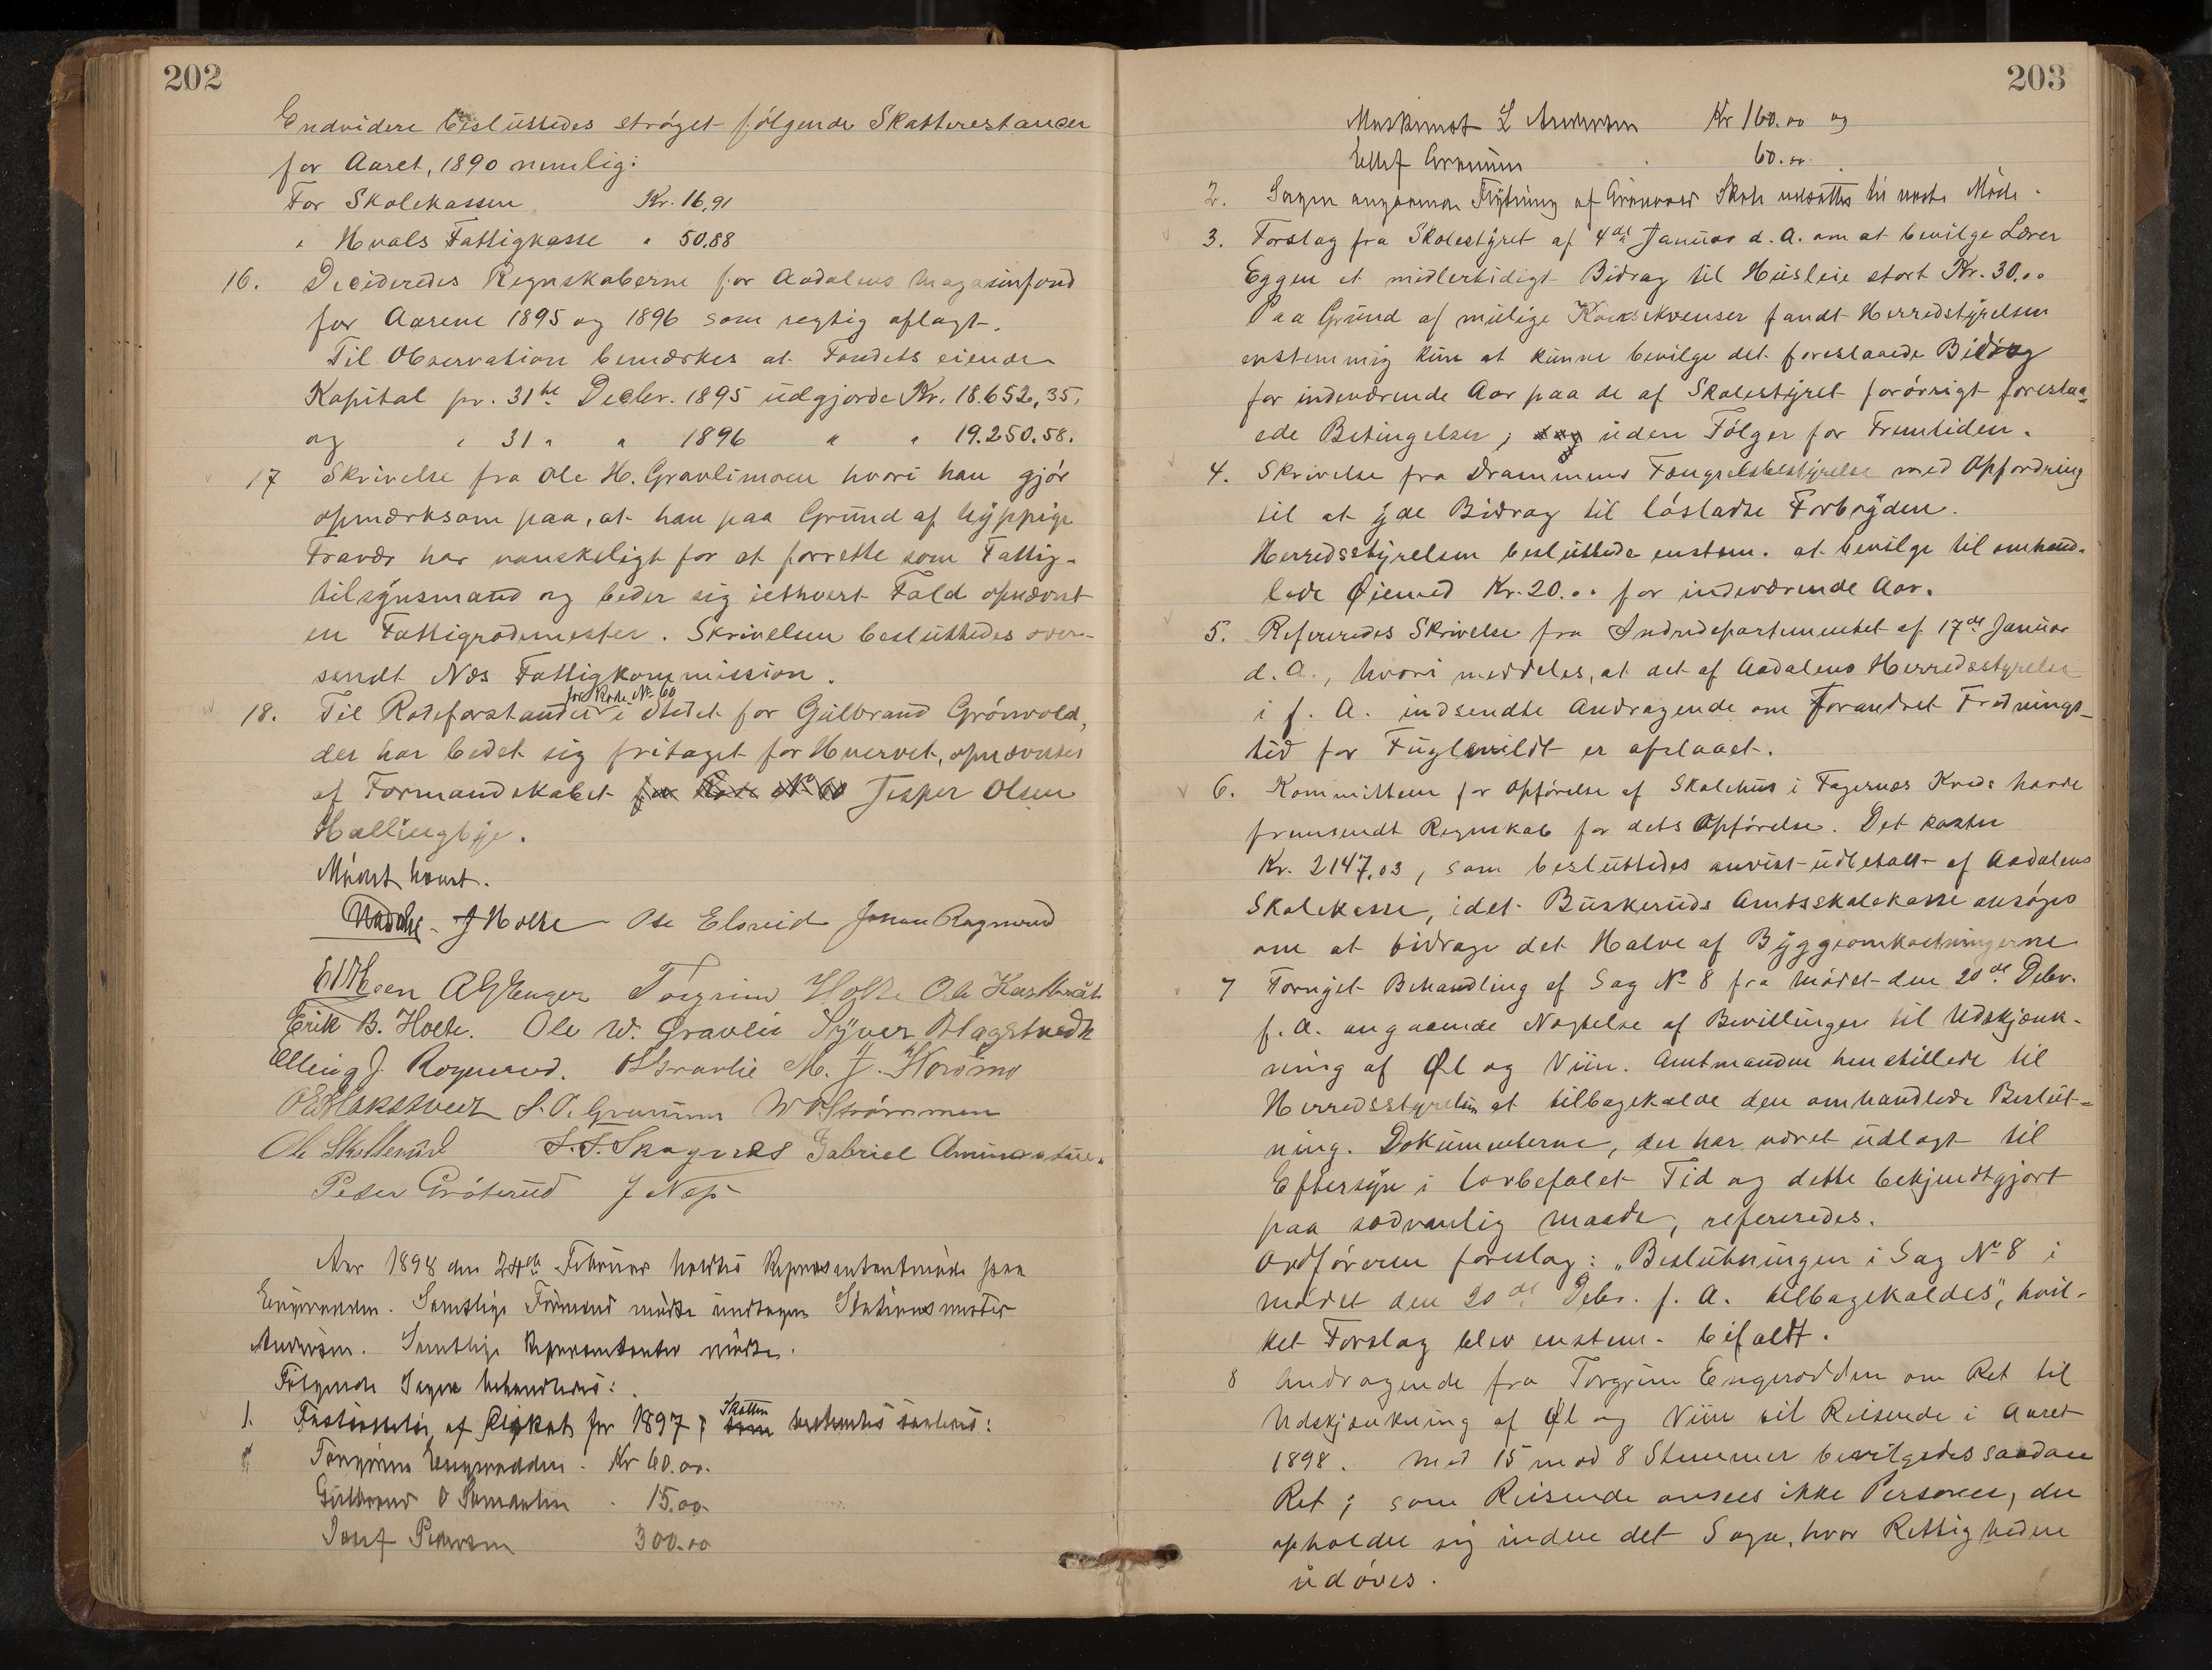 202
Endvidere besluttedes strøget følgende Skatterestancer
for Aaret, 1890 nemlig:
For Skolekassen Kr. 16,91
" Hvals Fattigkasse " 50.88
16. Decideredes Regnskaberne for Aadalens Magasinfond
for Aarene 1895 og 1896 som rigtig aflagt.
Til Observation bemærkes at Fondets eiende
Kapital pr. 31te Decbr. 1895 udgjorde Kr. 18.652,35,
og " 31 " " 1896 " " 19.250.58.
17 Skrivelse fra Ole H. Gravlimoen hvori han gjør
opmærksom paa, at han paa Grund af hyppige
Fravær har vanskeligt for at forrette som Fattig-
tilsynsmand og beder sig iethvert Fald opnævnt
en Fattigrodemester. Skrivelsen besluttedes over-
sendt Næs Fattigkommission.
for Rode No 60
18. Til Rodeforstander i Stedet for Gulbrand Grønvold,
der har bedet sig fritaget for Hvervet, opnævntes
af Formandskabet for Rode No 60 Jesper Olsen
Hallingbye.
Mødet hævet.
J Holte Ole Elsrud Johan Ragnrud
A G Enger Torgrim Holte Ole
Erik B. Holte. Ole W. Gravlie Syver Hagstvedt
Elling J. Rognerud. O Gravlie M. J.
S. O. Grumm W Strømmen
Ole Skollerud S. S. Skagnæs Gabriel
Peder Grøterud J Næss
Aar 1898 den 24de Februar holdtes Repræsentantmøde paa
Engerodden. Samtlige Formænd mødte undtagen Stationsmester
Andersen. Samtlige Repræsentanter mødte.
Følgende Sager behandledes:
1. af for 1897; Skatten
Torgrim Engerodden Kr 60.00.
Gulbrand O 15.00
Josef Pedersen 300.00
203
Maskinist L Andersen Kr 160.00 og
Ellef 60.00
2. Sagen angaaende Flytning af Skole udsattes til næste Møde.
3. Forslag fra Skolestyret af 4de Januar d. A. om at bevilge Lærer
Eggen et midlertidigt Bidrag til Husleie stort Kr. 30.00
Paa Grund af mulige Konsekvenser fandt Herredstyrelsen
enstemmig kun at kunne bevilge det foreslaaede Bidrag
for indeværende Aar paa de af Skolestyret forøvrigt foreslaa-
ede Betingelser; uden Følger for Fremtiden.
4. Skrivelse fra Drammens Fængselsbestyrelse med Opfordring
til at yde Bidrag til løsladte Forbryden.
Herredsstyrelsen besluttede enstem. at bevilge til omhand-
lede Øiemed Kr. 20.00 for indeværende Aar.
5. Refereredes Skrivelse fra Indredepartementet af 17de Januar
d. A., hvori meddeles, at det af Aadalens Herredsstyrelse
i f. A. indsendte Andragende om forandret Frednings-
tid for Fuglevildt er afslaaet.
6. Kommitteen for Opførelse af Skolehus i Fagernæs Kreds havde
fremsendt Regnskab for dets Opførelse. Det koster
Kr. 2147,03, som besluttedes anvist udbetalt af Aadalens
Skolekasse, idet Buskeruds Amtsskolekasse ansøges
om at bidrage det Halve af Byggeomkostningerne
7 Fornyet Behandling af Sag No 8 fra Mødet den 20de Debr.
f. A. angaaende Nægtelse af Bevillingen til Udskjænk-
ning af Øl og Viin. Amtmanden henstillede til
Herredsstyrelsen at tilbagekalde den omhandlede Beslut-
ning. Dokumenterne, der har været udlagt til
Eftersyn i lovbefalet Tid og dette bekjendtgjort
paa sædvanlig Maade, refereredes.
Ordføreren foreslog: "Beslutningen i Sag No 8 i
mødet den 20de Debr. f. A. tilbagekaldes", hvil-
ket Forslag blev enstem. bifaldt.
8 Andragende fra Torgrim Engerodden om Ret til
Udskjænkning af Øl og Viin til Reisende i Aaret
1898. Med 15 mod 8 Stemmer bevilgedes saadan
Ret; som Reisende ansees ikke Personer, der
opholder sig inden det Sogn, hvor Rettigheden
udøves.